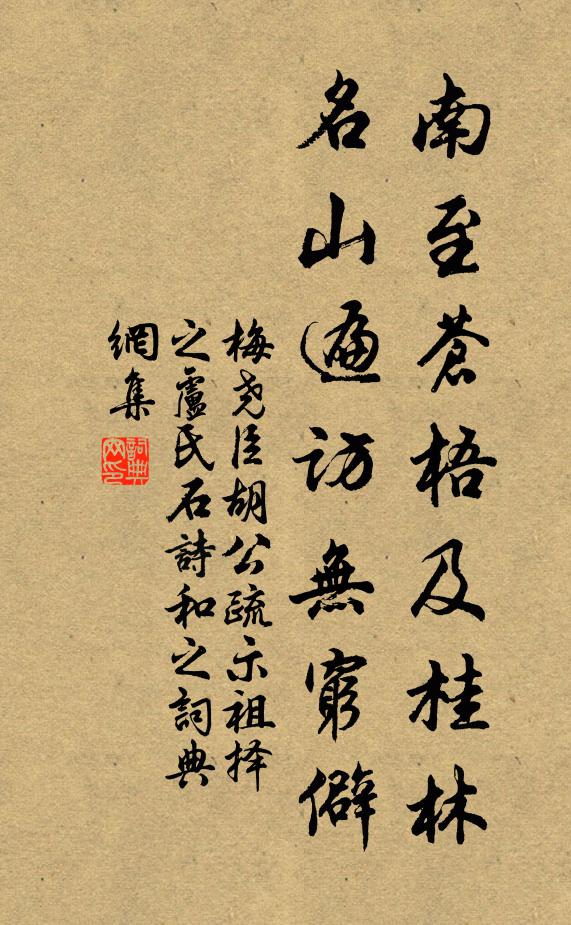 南至蒼梧及桂林
名山遍訪無窮僻
梅尧臣胡公疏示祖择
之盧氏石詩和之詞典
網集
詞典網印